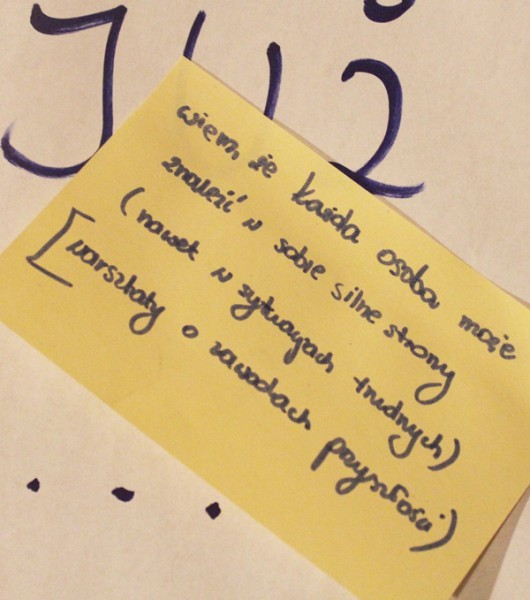 JUŻ
wiem, że każda osoba może
znaleźć w sobie silne strony
(nawet w sytuacjach trudnych)
[warsztaty o zawodach przyszłości)
...